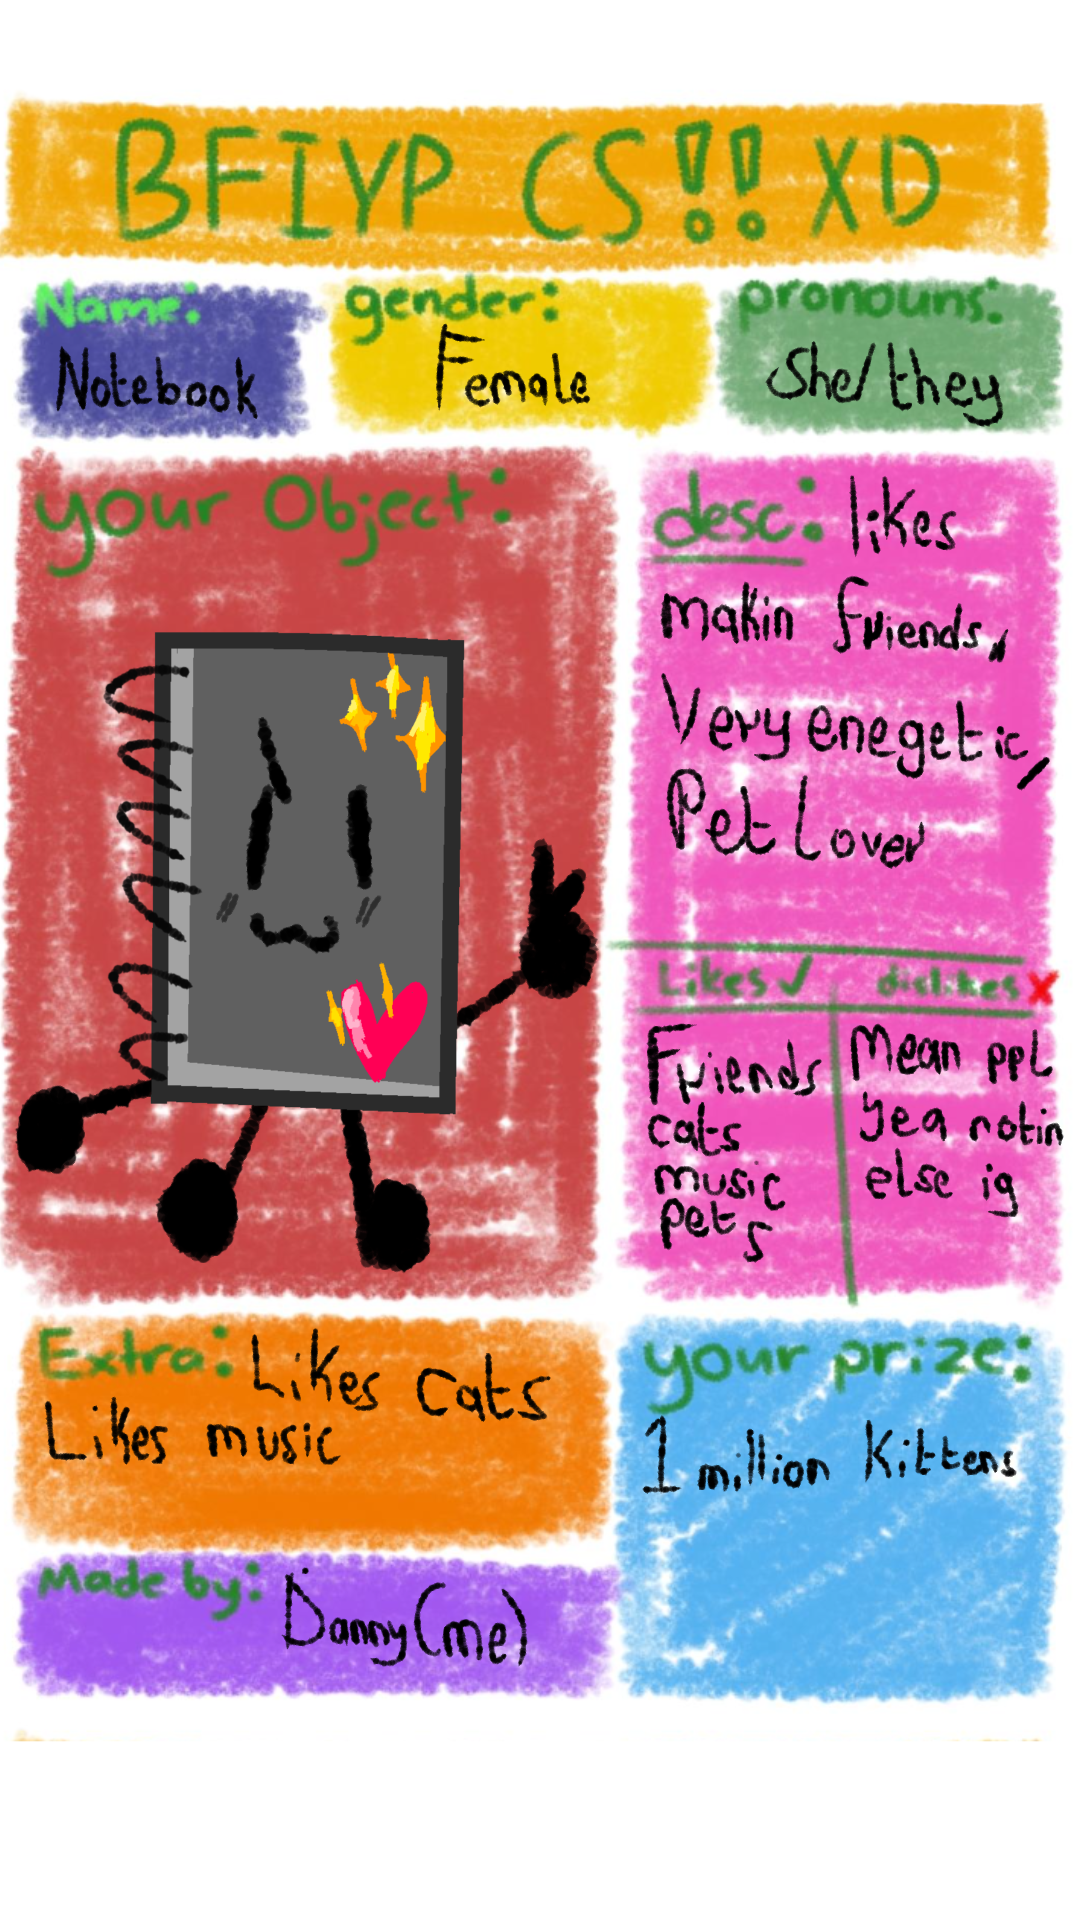 BFIYP CS!! XD
Name:
Notebook
gender:
Female
pronouns:
She/they
your Object:
desc: likes
makin friends,
Very enegetic,
Pet Lover
Likes✓
Friends
cats
music
pets
dislikes x
Mean ppl
yea notin
else ig
Extra: Likes cats
Likes music
your prize:
1 million kittens
Made by: Danny(me)